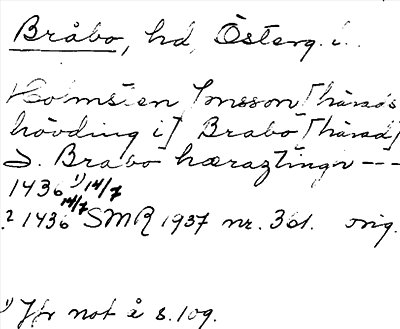 Bråbo, hd, Österg. l.
Holmsten Jonsson [härads
hövding i] Brabo [härad]
J. Brabo hæraztingn ---
1436 1) 14/7
2 1436 14/7 SMR 1937 nr. 361. orig.
1) Jfr not å s. 109.